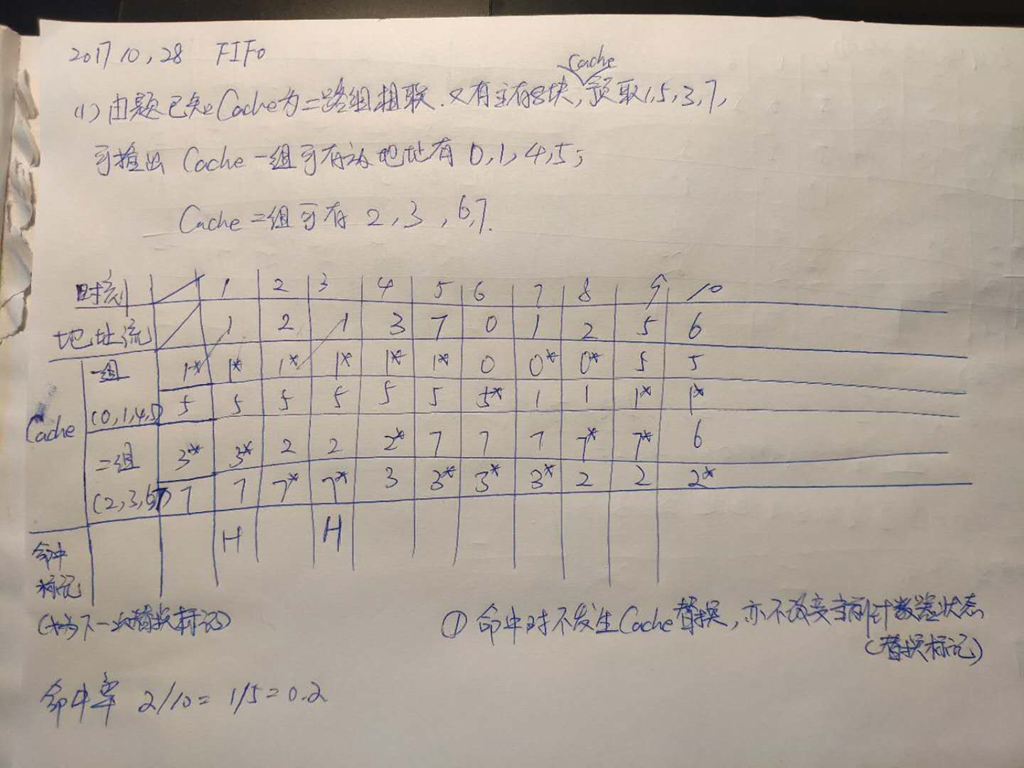 2017 10, 28 FIFO
cache
(1) 由题已知Cache为二路组相联.又有主存8块,预取1,5,3,7,
可推出 Cache一组可存放地址有 0,1,4,5;
Cache二组可存 2,3,6,7.
时刻 1 2 3 4 5 6 7 8 9 10
地址流 1 2 1 3 7 0 1 2 5 6
Cache
一组 1* 1* 1* 1* 1* 1* 0 0* 0* 5 5
(0,1,4,5) 5 5 5 5 5 5 5* 1 1 1* 1*
二组 3* 3* 2 2 2* 7 7 7 7* 7* 6
(2,3,6,7) 7 7 7* 7* 3 3* 3* 3* 2 2 2*
命中 H H
标记
(*为下一次替换标记)
① 命中时不发生Cache替换,亦不改变计数器状态
(替换标记)
命中率 2/10= 1/5=0.2